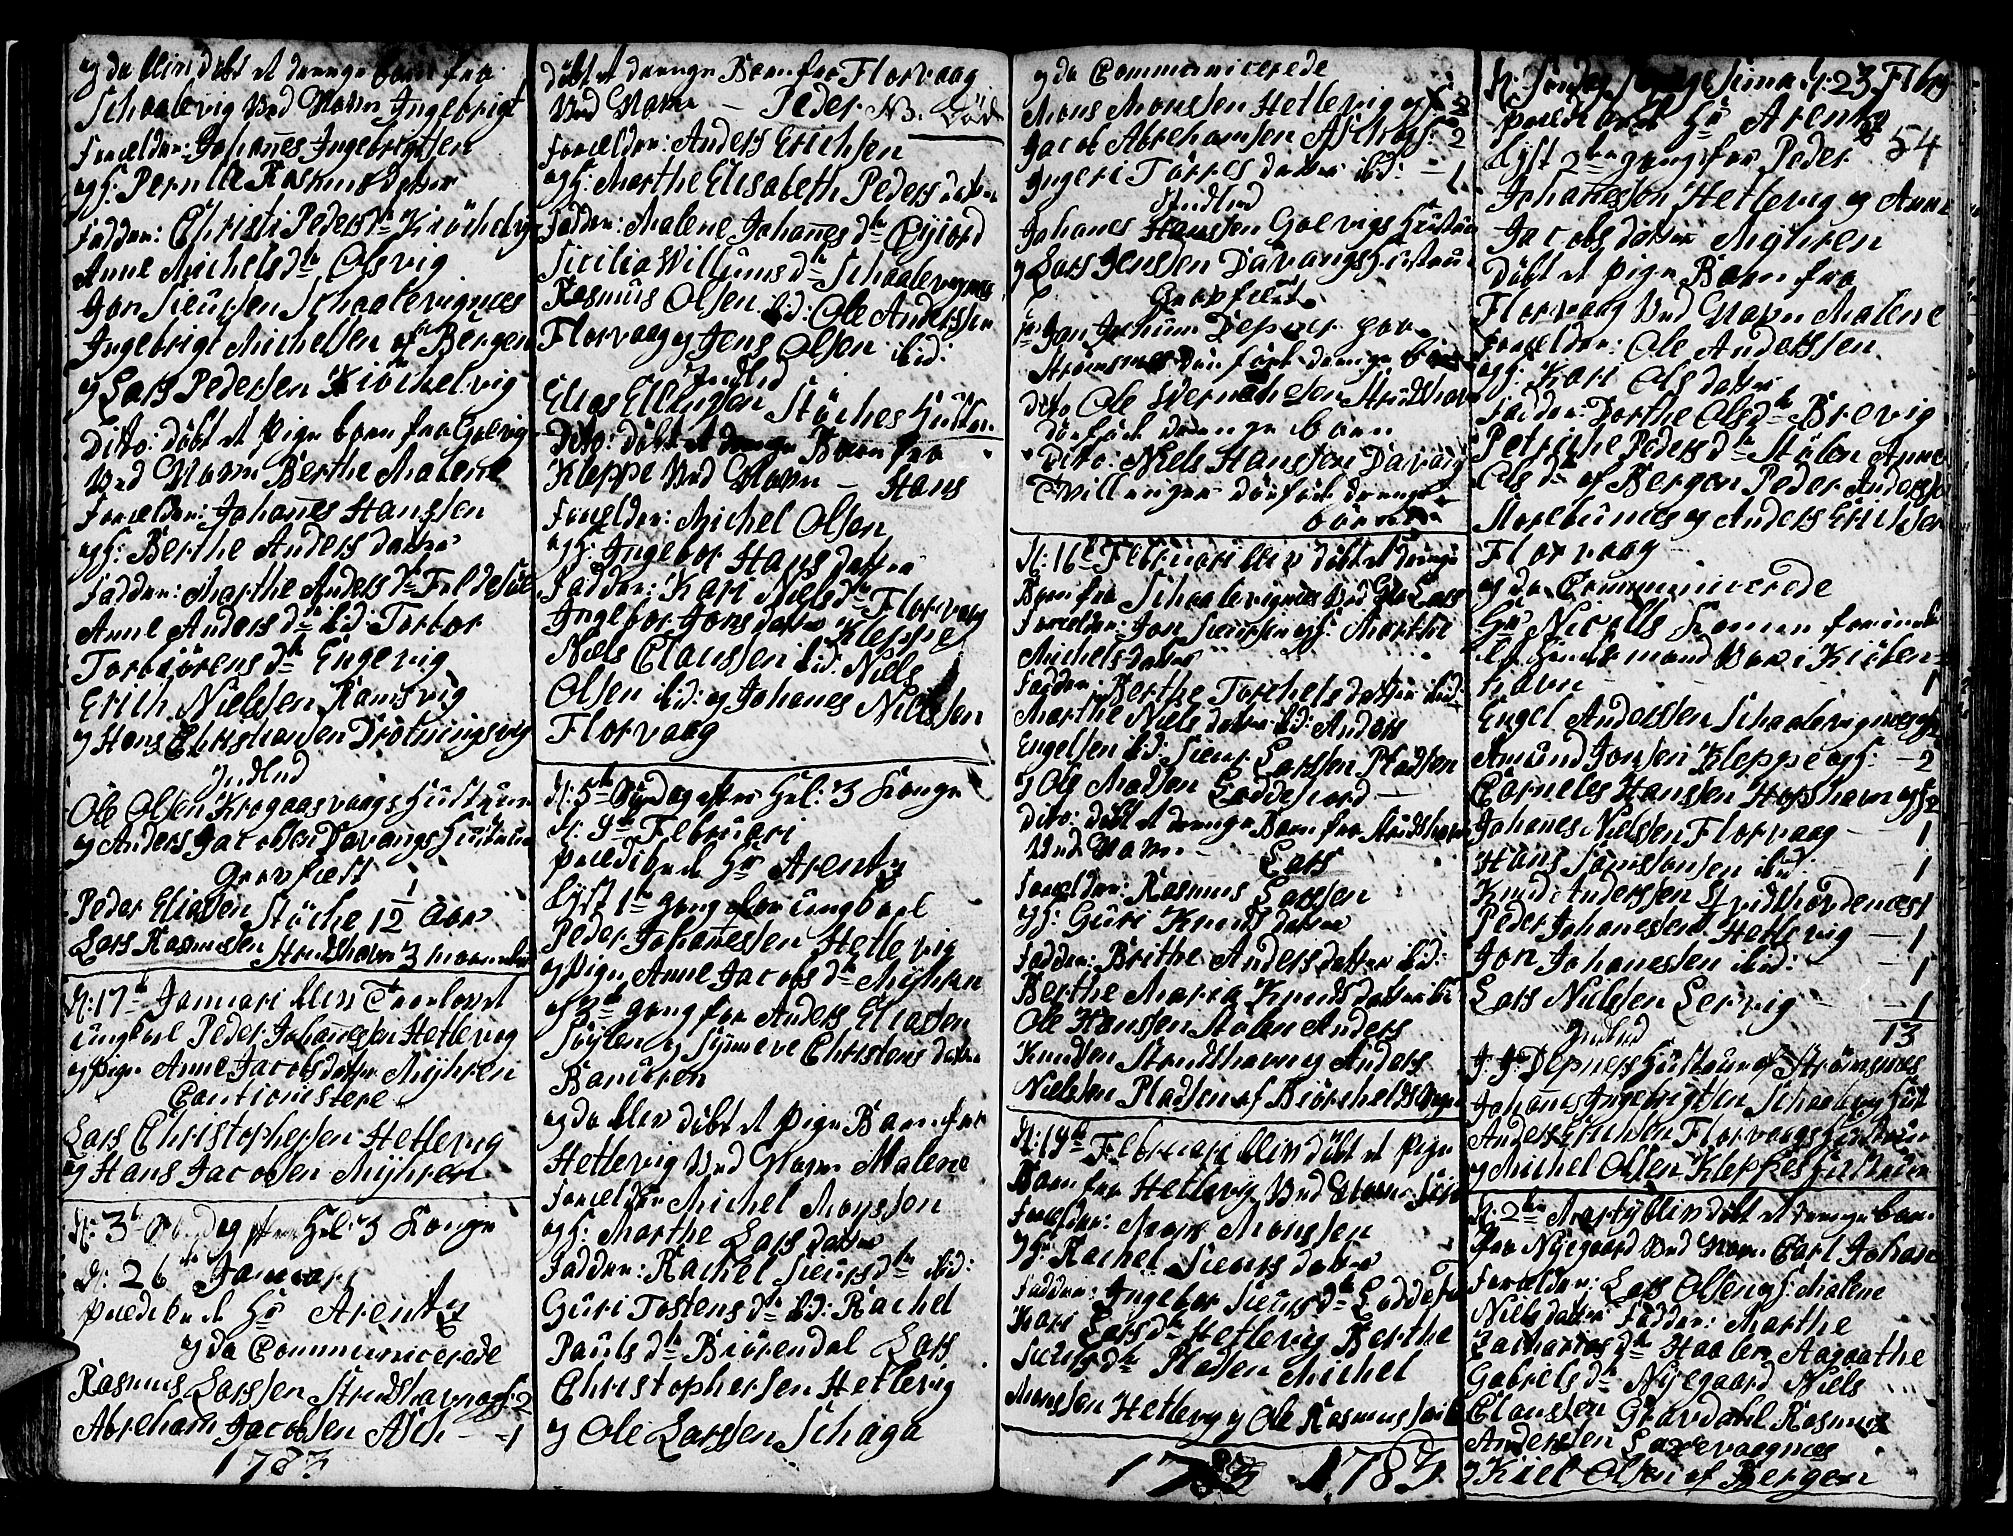 og da blev döbt et drenge barn fra
Schaalevig Ved Navn Ingebrigt
Forældre: Johanes Ingebrigtsen
og H: Pernille Rasmusdatter
Fadder: Christi Peders dr Kiöchelvig
Anne Michels dr Olsvig
Jon Siursen Schaalevignes
Ingebrigt Michelsen af Bergen
og Lars Pedersen Kiöchelvig
Dito: döbt et Pige barn fra Golvig
Ved Navn Berthe Malene
Forældre: Johanes Hanssen
og H: Berthe Anders datter
Fadder: Marthe Anders dr
Anne Anders dr ibd: Torbor
Torbiörens dr Engevig
Erich Nielssen Ramsvig
og Hans Christiansen Drotningsvig
Indled
Ole Olsen Krogaasvaags Hustrue
og Anders Jacobsen Davangs Hustrue
Gravfæst
Peder Eliassen Stöche 1/12 Aar
Lars Rasmussen Strudshavn 3 maaneder
D: 17de Januari blev Troelovet
ungkarl Peder Johanessen Hetlevig
og Pige Anne Jacobsdatter Myhren
Cautionistere
Lars Christophersen Hetlevig
og Hans Jacobsen Myhren
D: 3de Söndag efter Hel: 3 Konge
D: 26de Januari
prædikede Hr Arentz
og da Communicerede
Rasmus Larssen Strudshavn og H: 2
Abreham Jacobsen Asch - 1
1783
döbt et drenge Barn fra Florvaag
Ved Navn — Peder NB. död
Forældre: Anders Erichsen
og H: Marthe Elisabeth Peders datter
Fadder: Malene Johanes dr
Sicilia Willums dr Schaalevignes
Rasmus Olsen ibd: Ole Anderssen
Florvaag og Jens Olsen ibid:
Indled
Elias Ellingsen Stöches Hustrue
Dito: döbt et drenge Barn fra
Kleppe Ved Navn — Hans
Forældre: Michel Olsen
og H: Ingebor Hans datter
Fadder: Kari Niels dr Florvaag
Ingebor Jons datter Kleppe
Niels Claussen ibid: Niels
Olsen ibid: og Johanes Nielssen
Florvaag
D: 5te Söndag efter Hel: 3 Konge
D: 9de Februari
prædikede Hr Arentz
Lyst 1te gang for ungkarl
Peder Johanessen Hetlevig
og Pige Anne Jacobs dr Myhren
og 3de gang for Anders Eliassen
og Synneve Christens datter
og da blev döbt et Pige Barn fra
Hetlevig Ved Navn Malene
Forældre Michel Monssen
og H: Marthe Lars datter
Fadder: Rachel Siurs dr ibd:
Guri Tostens dr ibd: Rachel
Pauls dr Biörendal Lars
Christophersen Hetlevig
og Ole Larssen Schaga
og da Communicerede
Mons Monssen Hetlevig og H: 2
Jacob Abrehamsen Asch og H: 2
Ingeri Törres datter ibd: - 1
Indled
Johanes Hanssen Golvigs Hustrue
og Lars Jenssen Davangs Hustrue
Gravfæst
Jan Jochum Depner paa
Strömsnes död född drenge barn
Dito Ole Wernechsen Strudshavn
dödföd drenge barn
Dito: Niels Hanssen Davang
Tvillinger dödföd drenge
börn
D: 16de Februari blev döbt et drenge
Barn fra Schaalevignes Ved Navn Lars
Forældre: Jon Siursen og H: Marthe
Michels datter
Fadder: Berthe Torchels datter ibid:
Marthe Niels datter ibd: Anders
Engelsen ibd: Siur Larssen Pladsen
og Ole Madsen Loddefiord
Dito: döbt et drenge Barn fra Strudshavn
Ved Navn — Lars
Forældre: Rasmus Larssen
og H: Guri Knuds datter
Fadder: Brithe Anders datter ibd:
Berthe Maria Knuds datter ibd
Ole Hanssen Stölen Anders
Knudsen Strudshavn og Anders
Nielssen Pladsen af
D: 19de Februari blev döbt et Pige
Barn fra Hetlevig Ved Navn
Forældre: Mons Monssen
og H: Rachel Siurs datter
Fadder: Ingebor Siurs dr Loddefi
Kari Lars dr Hetlevig Berthe
Siurs dr Pladsen Michel
Monssen Hetlevig og Ole Rasmussen ibd
1783 1783
D: Söndag Sexagesima d: 23 Febry
prædikede Hr Arentz
54
Lyst 2den gang for Peder
Johanessen Hetlevig og Anne
Jacobs datter Myhren
Döbt et Pige Barn fra
Florvaag Ved Navn Malene
Forældre: Ole Anderssen
og H: Kari Ols datter
Fadder: Dorthe Ols dr Brevig
Petriche Peders dr Stölen Anne
Ols dr af Bergen Peder Anderssen
og Anders Erichsen
Florvaag
og da Communicerede
Hr Nicolls
i Kiöben-
havn - 1
Engel Anderssen Schaalevignes og H: 2
Amund Jonssen Kleppe og H: - 2
Corneles Hanssen Hopshavn og H: 2
Johanes Nielssen Florvaag — 1
Hans Samssonsen ibd. - 1
Knud Anderssen 1
Peder Johanessen Hetlevig — 1
Jon Johanessen ibid: - 1
Lars Nielssen Lervig - 1
13
Indled
J: J: Depners Hustrue af Strömsnes
Johanes Ingebrigtsen Schaalevig Hust
Anders Erichsen Florvaags Hustrue
og Michel Olsen Kleppes Hustrue
D: 2den Marty blev döbt et drenge barn
fra Nyegaard Ved Navn Carl Johan
Forældre: Lars Olsen og H: Malene
Niels datter Fadder: Marthe
Zacharias dr Haalen Aagaathe
Gabriels dr Nyegaard Niels
Claussen Gravdahl Rasmus
Anderssen Laxevaagnes
og Kiel Olsen af Bergen